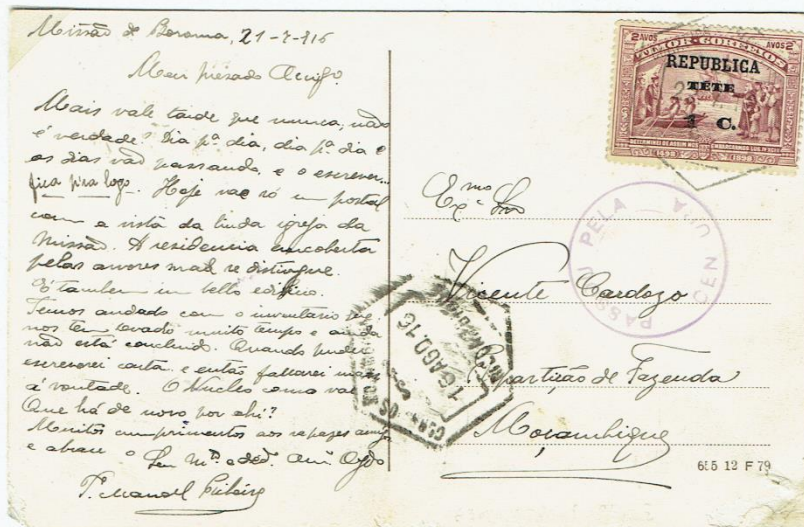 Missão de Boroma, 21-7-916
Meu prezado Amigo
Mais vale tarde que nunca, não
é verdade? Dia pª dia, dia pª dia e
os dias vão passando, e o escrever...
fica pira logo. Hoje vae só um postal
com a vista da linda igreja da
Missão. A residencia encoberta
pelas arvores mal se distingue.
É tambem um bello edificio.
Temos andado com o inventario que
nos tem levado muito tempo e ainda
não está concluido. Quando puder
escreverei carta e então fallarei mais
á vontade. O Nucleo como vae
Que há de novo por ahi?
Muitos cumprimentos aos rapazes
e abrace o
P.e Manoel
2 AVOS 2 AVOS
TIMOR-CORREIOS
REPUBLICA
TETE
1 C.
1498 1898
PASSOU PELA CENSURA
Exmo Snr
Vicente Cardozo
Repartição de Fazenda
Moçambique
CORREIOS
MOÇAMBIQUE
16 AGO. 16
655 12 F 79